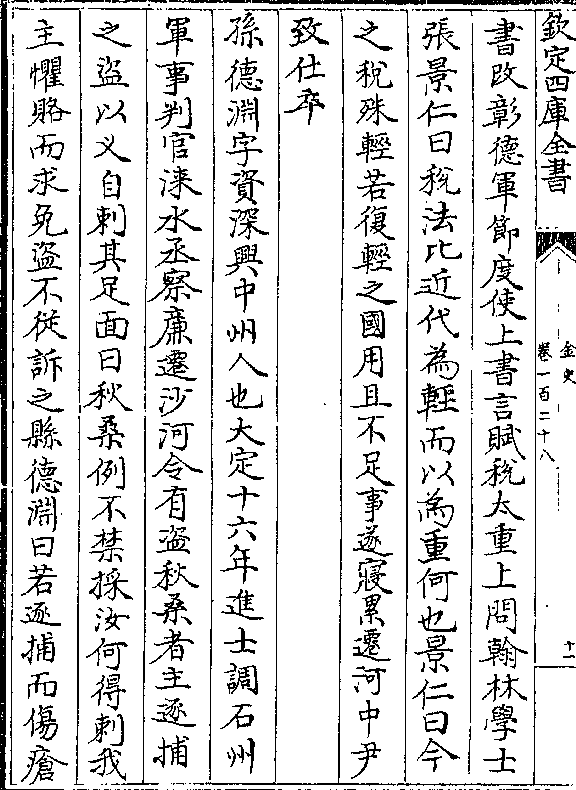 欽定四庫全書
金史
卷一百二十八
十一
書改彰德軍節度使上書言賦稅太重上問翰林學士
張景仁曰稅法比近代為輕而以為重何也景仁曰今
之稅殊輕若復輕之國用且不足事遂寢累遷河中尹
致仕卒
孫德淵字資深興中州人也大定十六年進士調石州
軍事判官淶水丞察廉遷沙河令有盜秋桑者主逐捕
之盜以叉自刺其足面曰秋桑例不禁採汝何得刺我
主懼賂而求免盜不從訴之縣德淵曰若逐捕而傷瘡